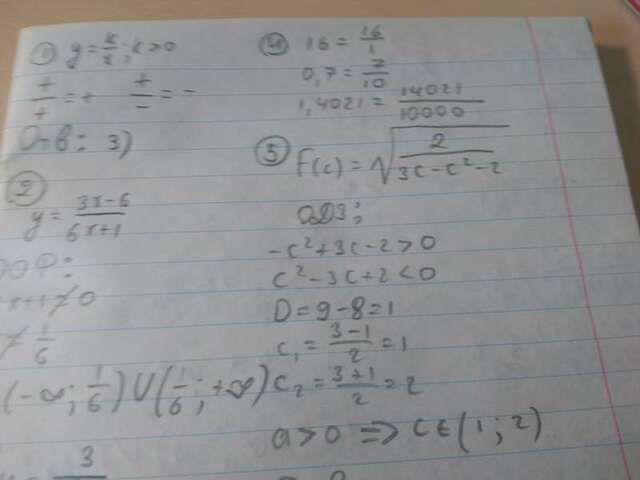 1) y = k/x ; k > 0
+/+ = +   +/− = −
Отв: 3)
2)
y = (3x−6)/(6x+1)
ООФ:
x+1 ≠ 0
≠ 1/6
(−∞; 1/6) ∪ (1/6; +∞)
3
4) 16 = 16/1
0,7 = 7/10
1,4021 = 14021/10000
5)
F(c) = √(2/(3c−c²−2))
ОДЗ:
−c²+3c−2>0
c²−3c+2<0
D=9−8=1
c₁ = (3−1)/2 = 1
c₂ = (3+1)/2 = 2
a>0 ⇒ c∈(1; 2)